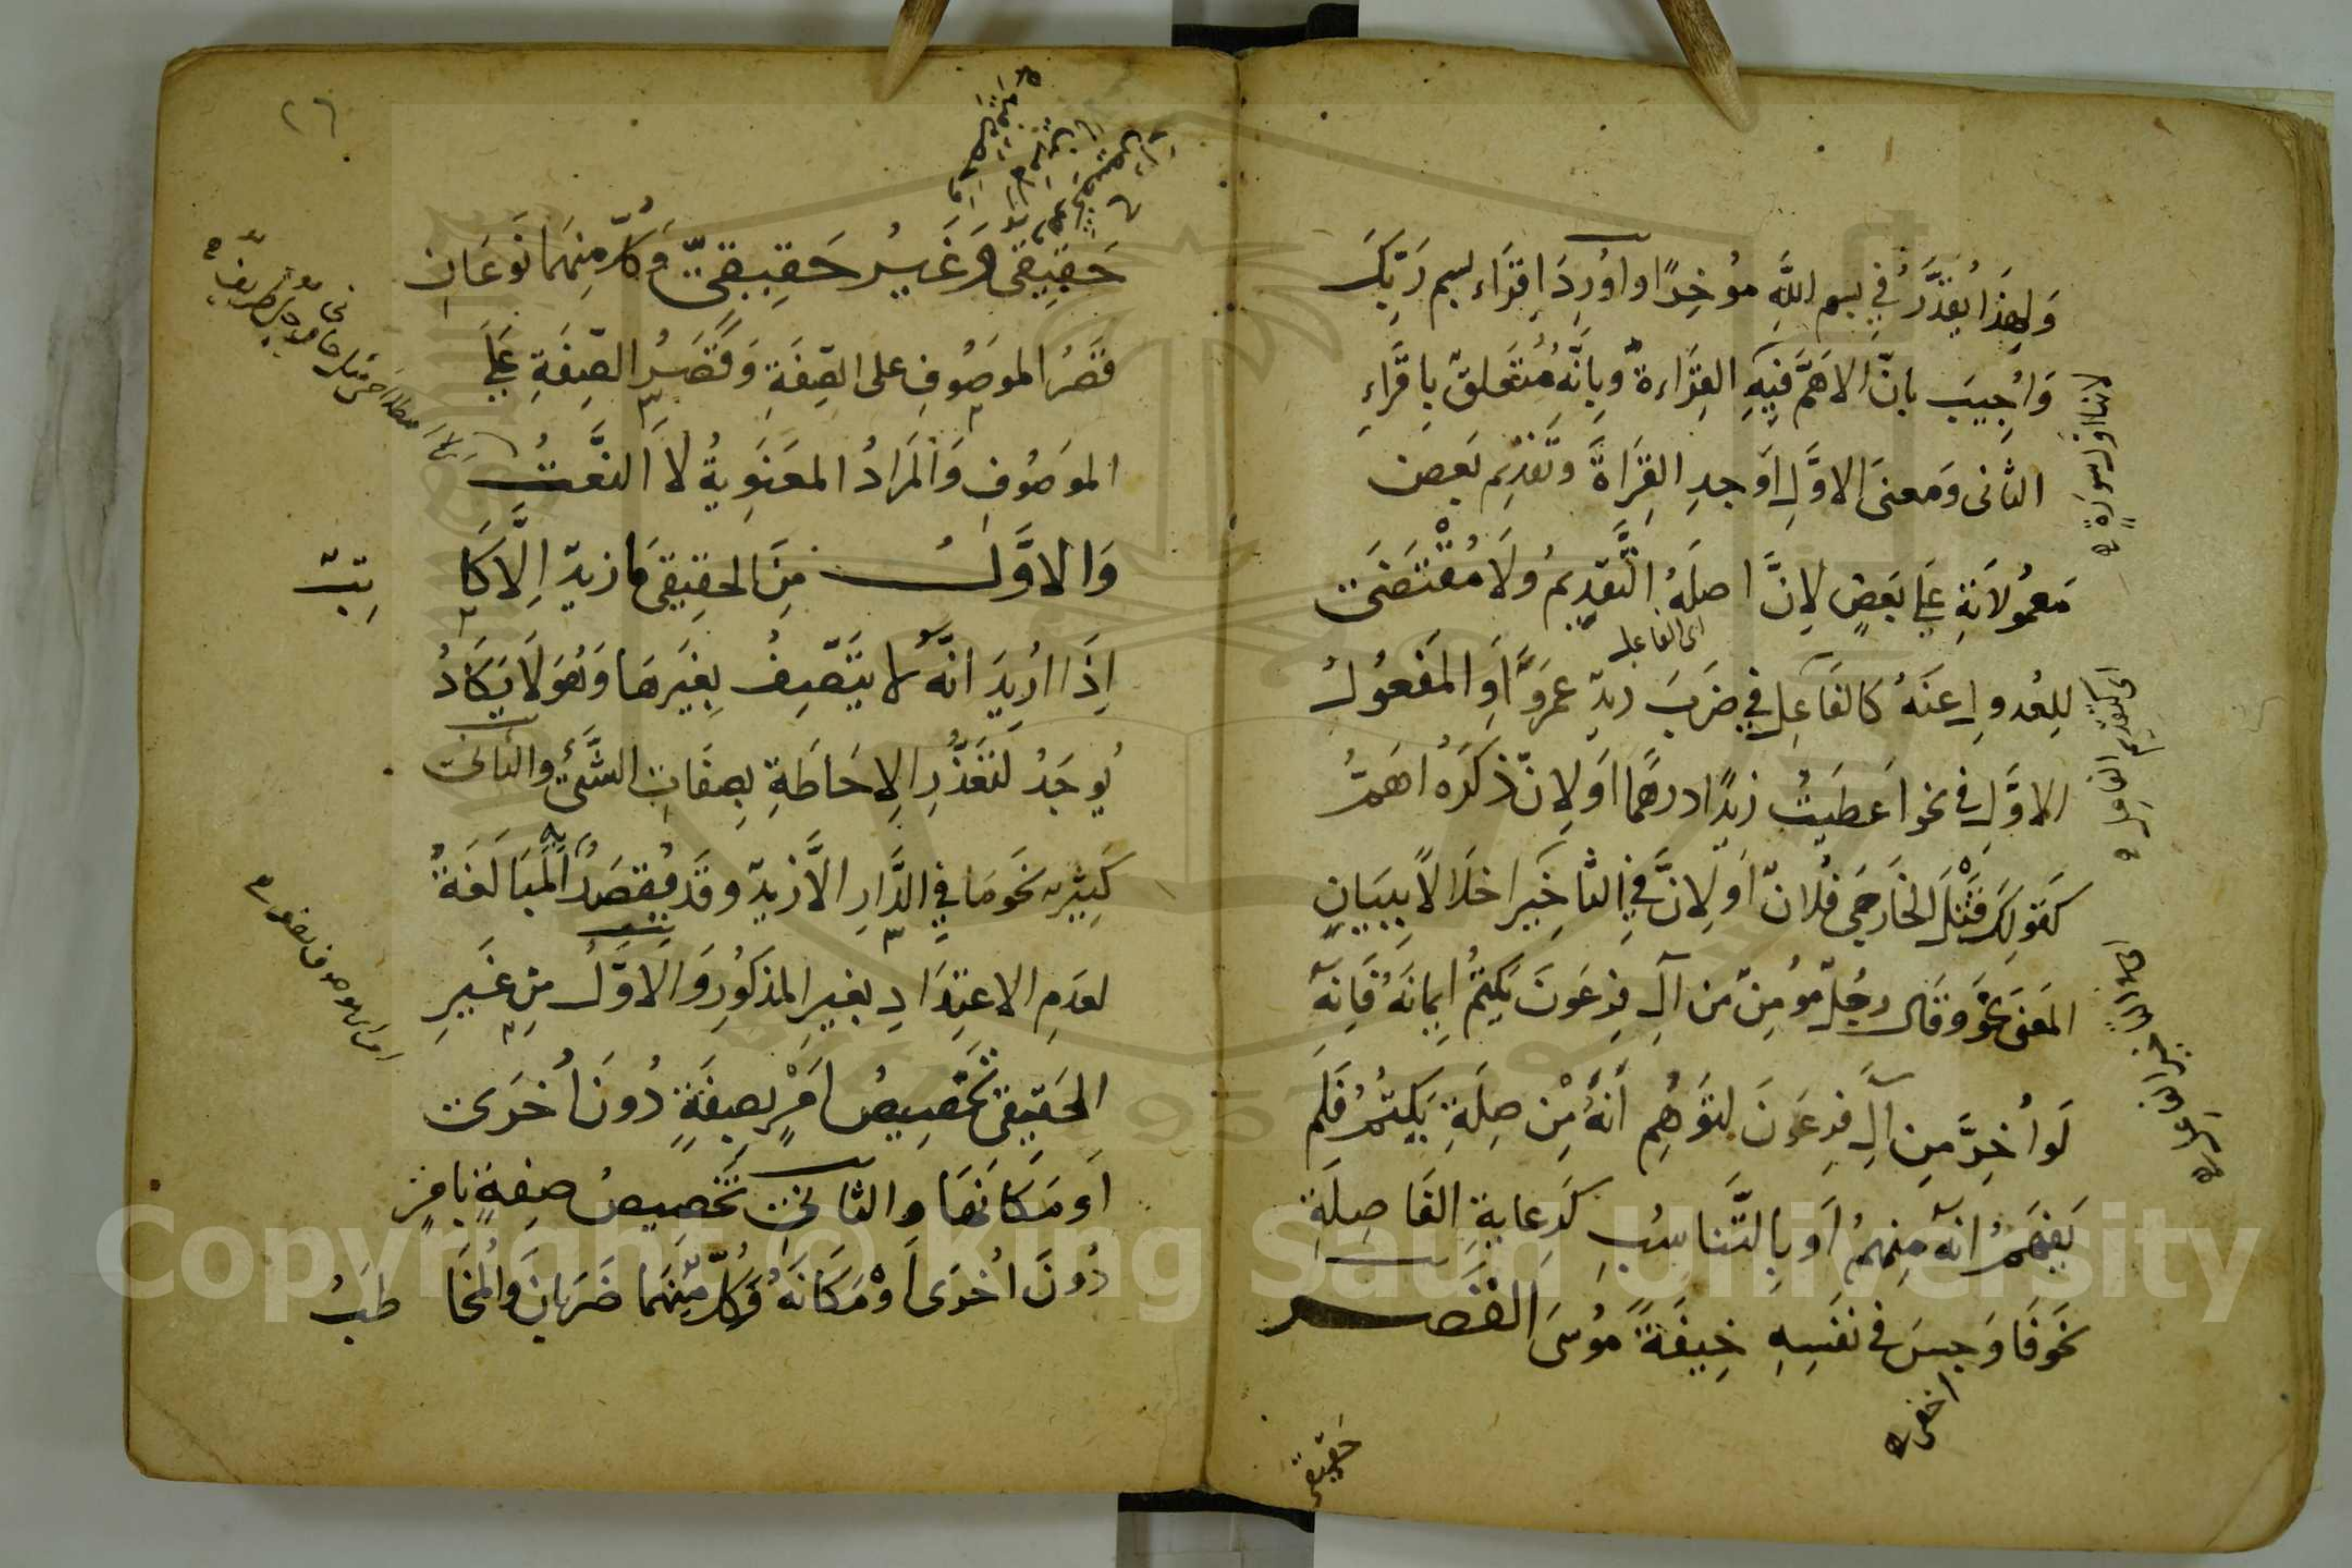 وَلِهَذَا يُقَدَّرُ فِي بسم اللَّهِ مُؤخِّرًا واوُرِدَ اِقْرَاء بسم رَبِّكَ
وَاُجِيبَ بانّ الاهَمَّ فِيهِ القِرَاءةُ وَبِانَّهُ مُتَعَلقٌ بِاقْرَاءِ
الثانى وَمَعنىَ الاوَّلِ اَوجِدِ القِرَاةَ وَتَقدِيم بَعضِ
مَعمُولاتِهِ عَلي بَعضٍ لاِنَّ اصلَهُ التَّقدِيمُ وَلَا مُقْتَضَى
اى الفاعل
لِلعُدولِ عَنهُ كالفَاعِلِ في ضَرَبَ زيدٌ عَمرًوا اَوِ المَفعُولِ
الاوَّلِ في نحو اَعطَيتُ زيدًا درهَمًا اَو لاِنّ ذكَرَهُ اهَمُّ
كقَولِكَ قَتْلَ الخَارجيّ فُلانٌ اَو لِانَّ فِي التأخِيرِ اخلَالاً بِبَيَانِ
المَعنى نحَو وَقَال رجُلٌ مُؤمِنٌ من آلِ فِرعَونَ يَكتُمُ ايمانَهُ فَاِنّه
لَو اُخِّرَ مِن آلِ فِرعَونَ لتُوهِم اَنَّهُ مِنْ صِلَةِ يَكتُمُ فَلَم
يُفهَم انّه مِنهُم اَو بِالتَّنَاسُبِ كَرِعايةِ الفَاصِلَةِ
نحَو فَاوجَسَ في نفَسِهِ خِيفَةً مُوسىَ القَصر
حَقيقي
حَقِيقِي وَغَيرُ حَقِيقِيّ وَكلّ مِنهمَا نَوعَانِ
قَصرُ الموصُوفِ على الصِّفَةِ وَقَصرُ الصِّفَةِ عَلَي
الموصُوفِ وَالمرَادُ المعنَوِيةُ لاَ النَّعتُ
وَالاوَّلُ مِنَ الحقِيقِي مَا زيدٌ اِلَّا كَا تِبٌ
اِذَا ارُيدَ انَّهُ لا يتَّصِفُ بِغَيرهَا وَهُوَ لَا يَكَادُ
يُوجَدُ لتَعَذُّرِ الاِحَاطَةِ بِصِفَاتِ الشَّئِ والثانى
كَثِير نحَو مَا في الدَّارِ الاَّ زيدٌ وقَد يُقصَدُ بِهِ المُبَالَغَةُ
لعَدَمِ الاعتِدَادِ بغيرِ المذكُورِ وَالاوَّلُ مِن غَيرِ
الحَقِيقِي تخَصِيصُ امَرٍ بصِفَةٍ دُونَ اُخرَى
اَو مَكَانَهَا وَالثانى تَخصِيصُ صِفةٍ بامَرٍ
دُونَ اُخرَى اَوْ مَكَانَهُ وَكلّ مِنهُمَا ضَربَانِ وَالمُخَا طَبُ
Copyright © King Saud University